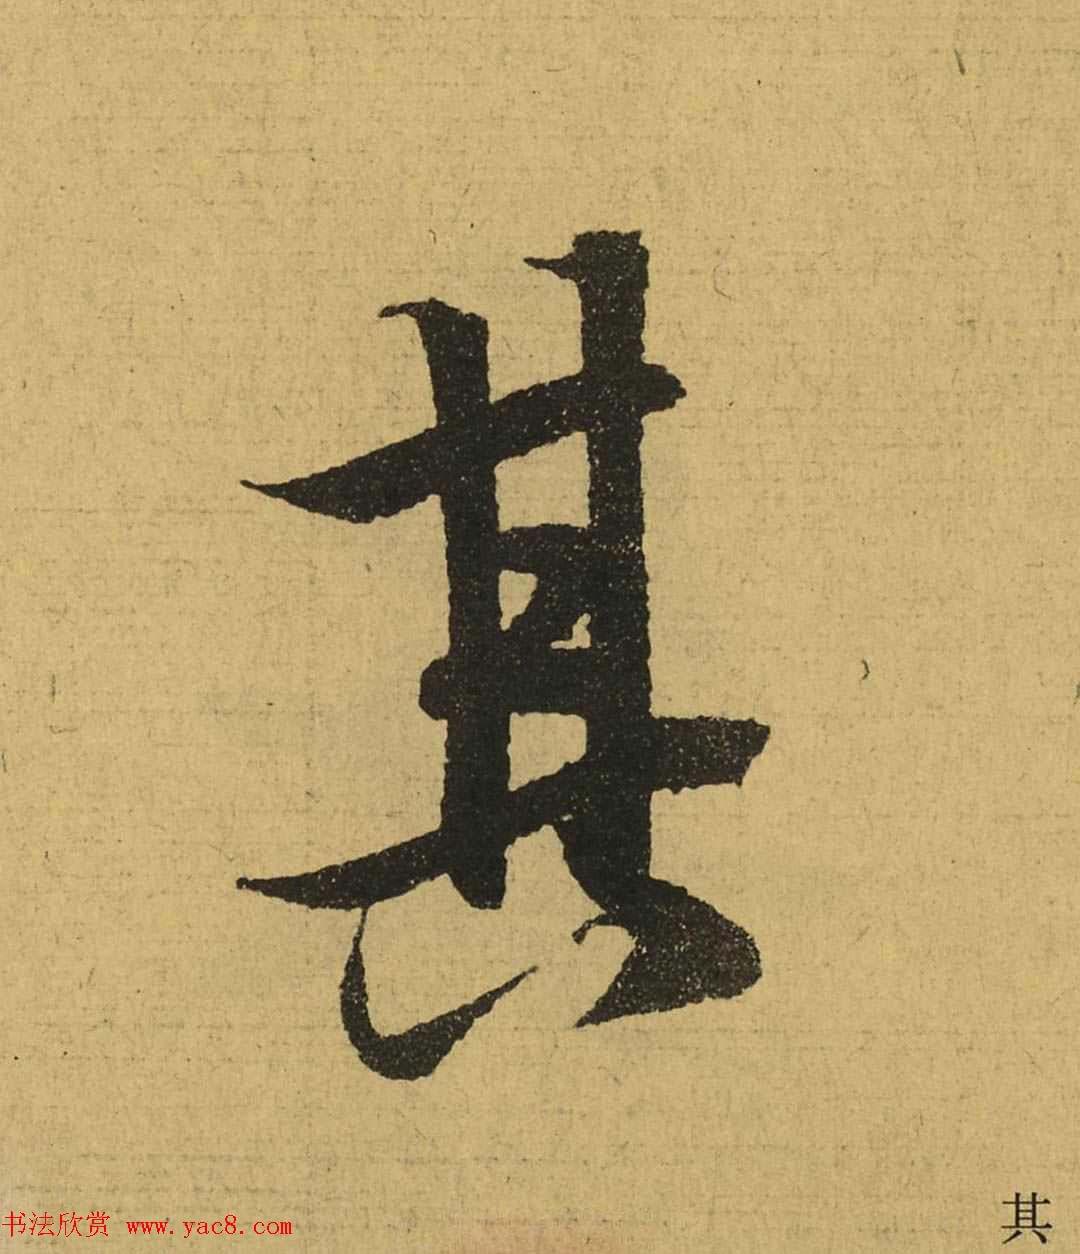 其
书法欣赏 www.yac8.com
其